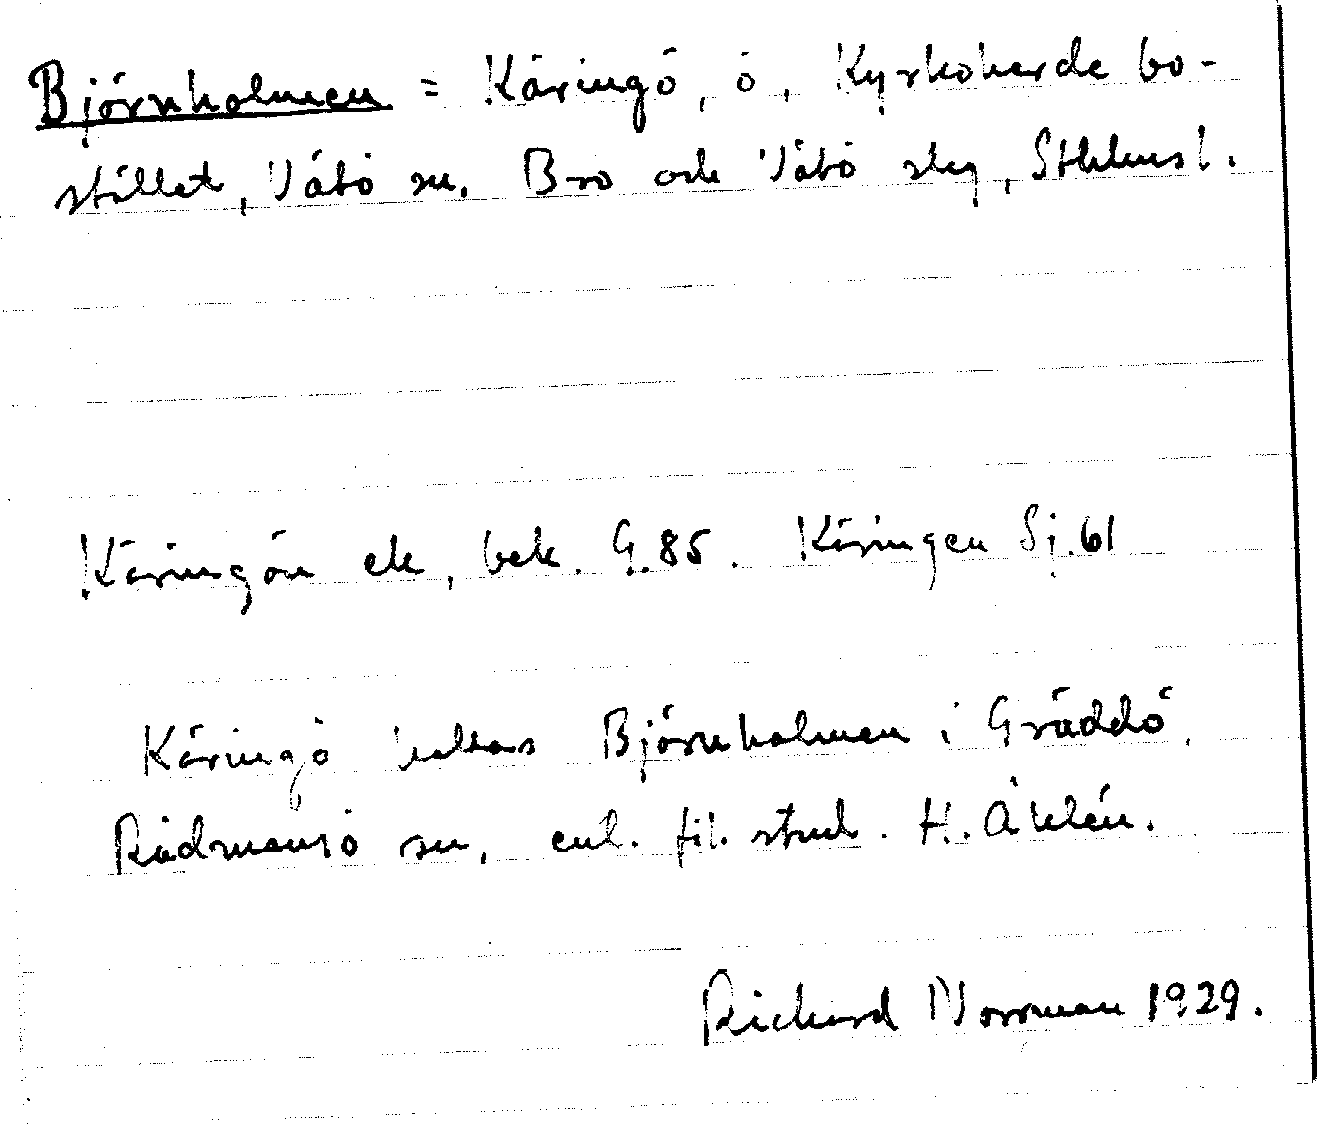 Björnholmen = Käringö, ö, Kyrkoherdebo-
stället, Vätö sn. Bro och Vätö skg, Sthlmsl.
Käringön ek, bek. G.85. Käringen Sj.61
Käringö kallas Björnholmen i Gräddö,
Rådmansö sn, enl. fil. stud. H. Åhlén.
Richard Norrman 1929.